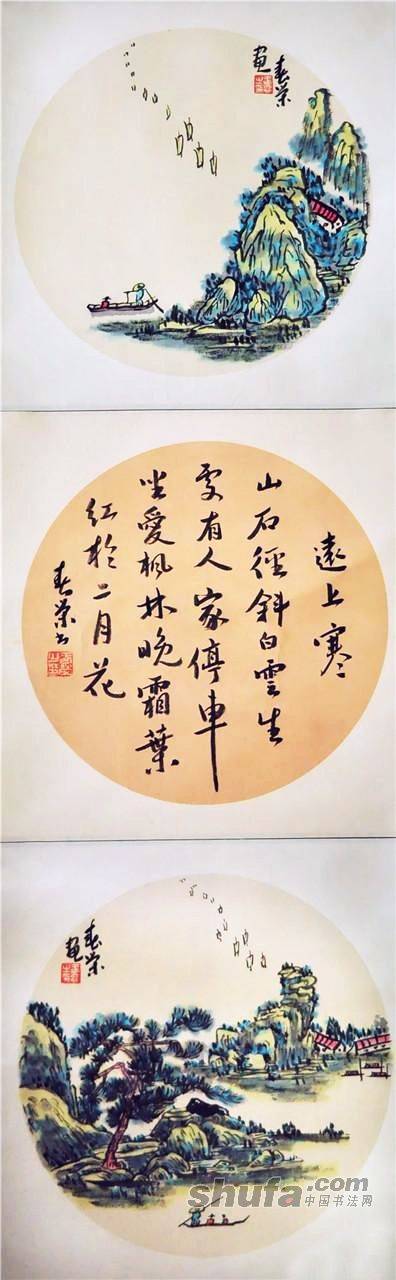 春荣
画
遠上寒
山石徑斜白雲生
处有人家停車
坐愛枫林晚霜葉
红於二月花
春荣书
春荣
画
shufa.com
中国书法网